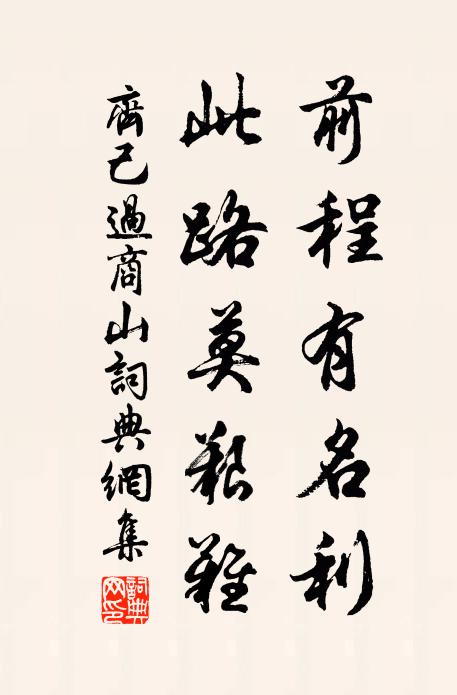 前程有名利
此路莫艱難
齊己過商山詞典網集
詞典网印